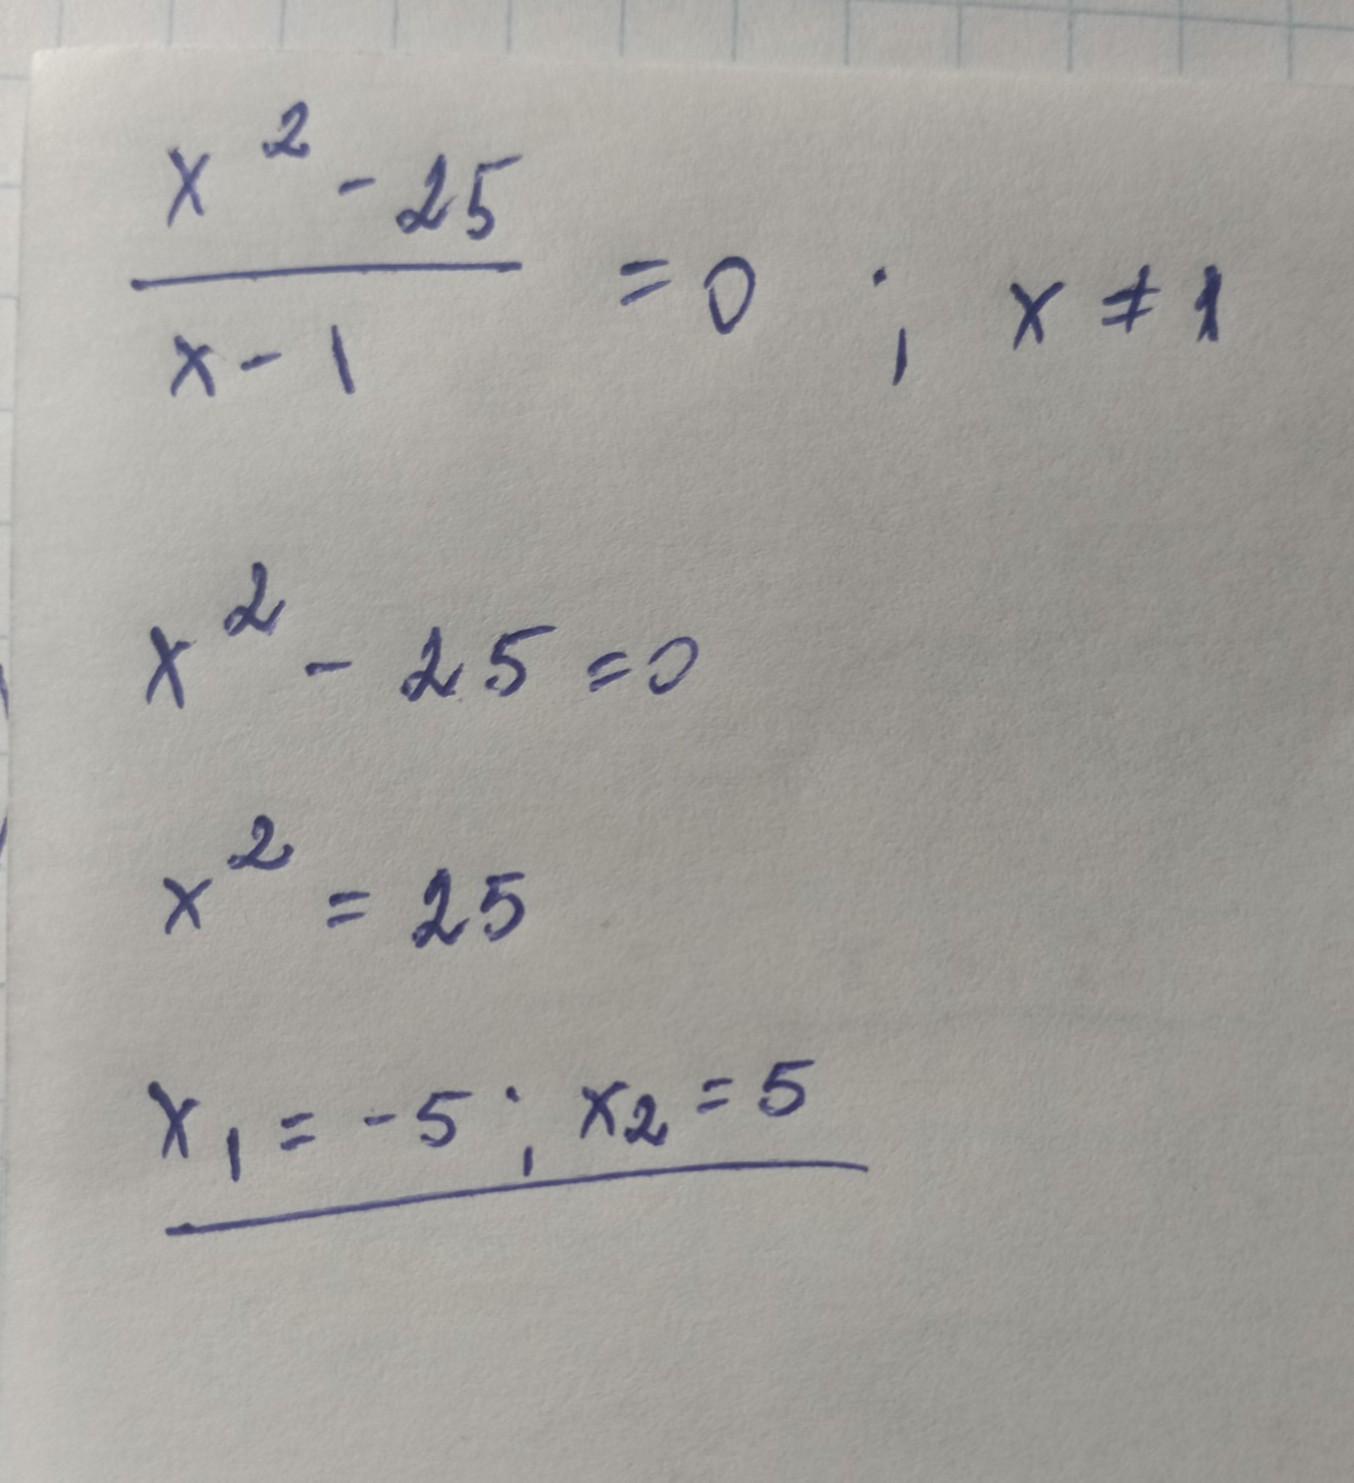 x² - 25
x - 1
= 0 ; x ≠ 1
x² - 25 = 0
x² = 25
x₁ = -5 ; x₂ = 5